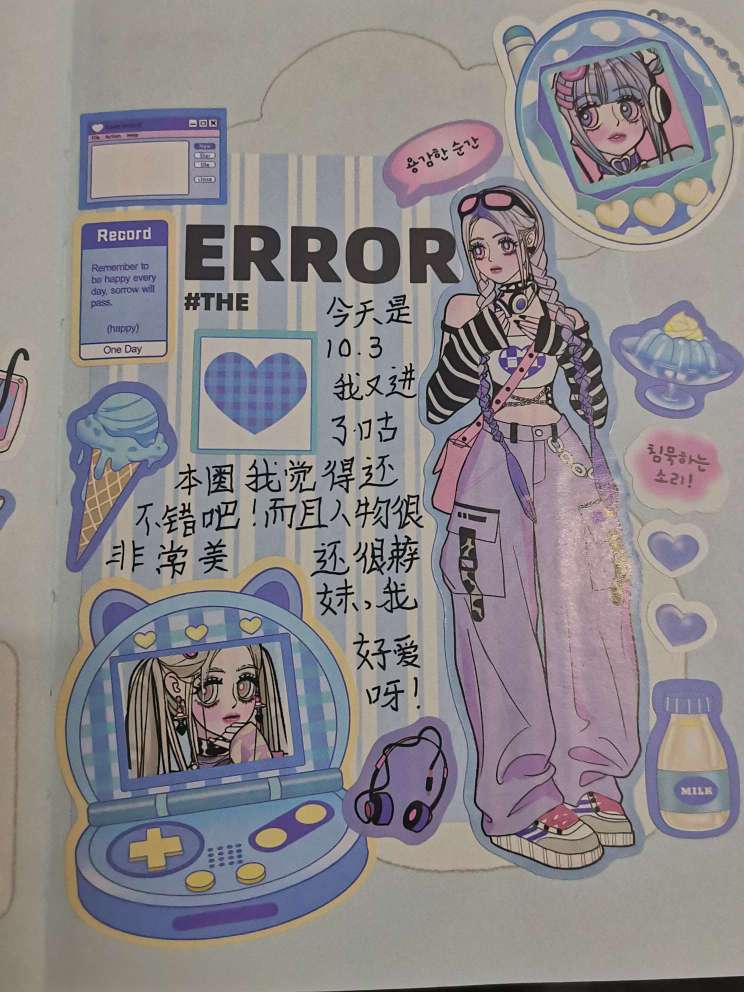 File Action Help
close
용감한 순간
Record
Remember to
be happy every
day, sorrow will
pass.
(happy)
One Day
ERROR
#THE
今天是
10.3
我又进
了咕
本圈我觉得还
不错吧！而且人物很
非常美
还很辣
妹、我
好爱
呀！
침묵하는
소리!
MILK